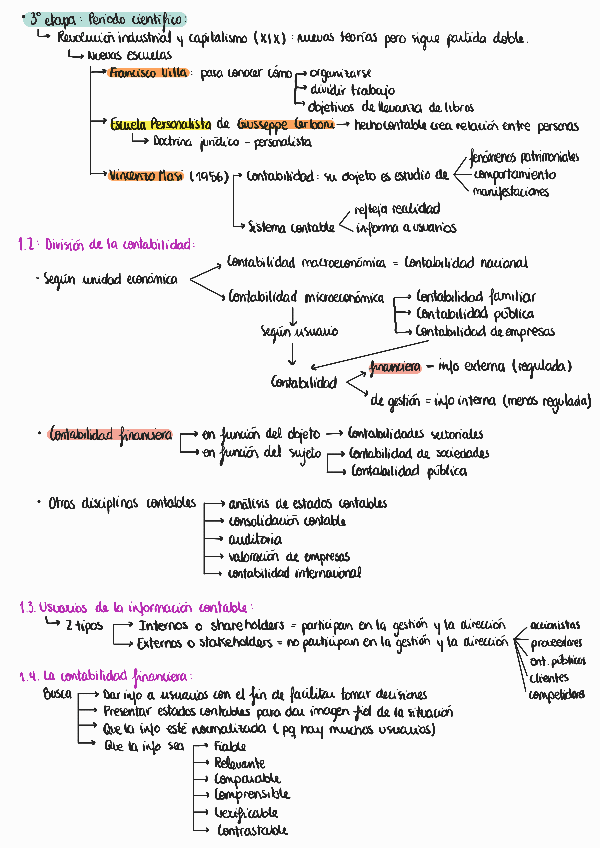 · 3º etapa: Periodo científico:
↳ Revolución industrial y capitalismo (XIX): nuevas teorías pero sigue partida doble.
↳ Nuevas escuelas
→ Francisco Villa: para conocer cómo → organizarse
→ dividir trabajo
→ objetivos de llevanza de libros
→ Escuela Personalista de Giusseppe Cerboni → hecho contable crea relación entre personas
↳ Doctrina jurídico - personalista
→ Vincenzo Masi (1956) → Contabilidad: su objeto es estudio de
fenómenos patrimoniales
comportamiento
manifestaciones
→ Sistema contable
refleja realidad
informa a usuarios
1.2: División de la contabilidad:
· Según unidad económica
Contabilidad macroeconómica = Contabilidad nacional
Contabilidad microeconómica → Contabilidad familiar
→ Contabilidad pública
→ Contabilidad de empresas
Según usuario
Contabilidad
financiera = info externa (regulada)
de gestión = info interna (menos regulada)
· Contabilidad financiera → en función del objeto → Contabilidades sectoriales
→ en función del sujeto → Contabilidad de sociedades
→ Contabilidad pública
· Otras disciplinas contables → análisis de estados contables
→ consolidación contable
→ auditoria
→ valoración de empresas
→ contabilidad internacional
1.3. Usuarios de la información contable:
↳ 2 tipos → Internos o shareholders = participan en la gestión y la dirección
→ Externos o stakeholders = no participan en la gestión y la dirección
accionistas
proveedores
ent. públicas
clientes
competidores
1.4. La contabilidad financiera:
Busca → Dar info a usuarios con el fin de facilitar tomar decisiones
→ Presentar estados contables para dar imagen fiel de la situación
→ Que la info esté normalizada (pq hay muchos usuarios)
→ Que la info sea → Fiable
→ Relevante
→ Comparable
→ Comprensible
→ Verificable
→ Contrastable